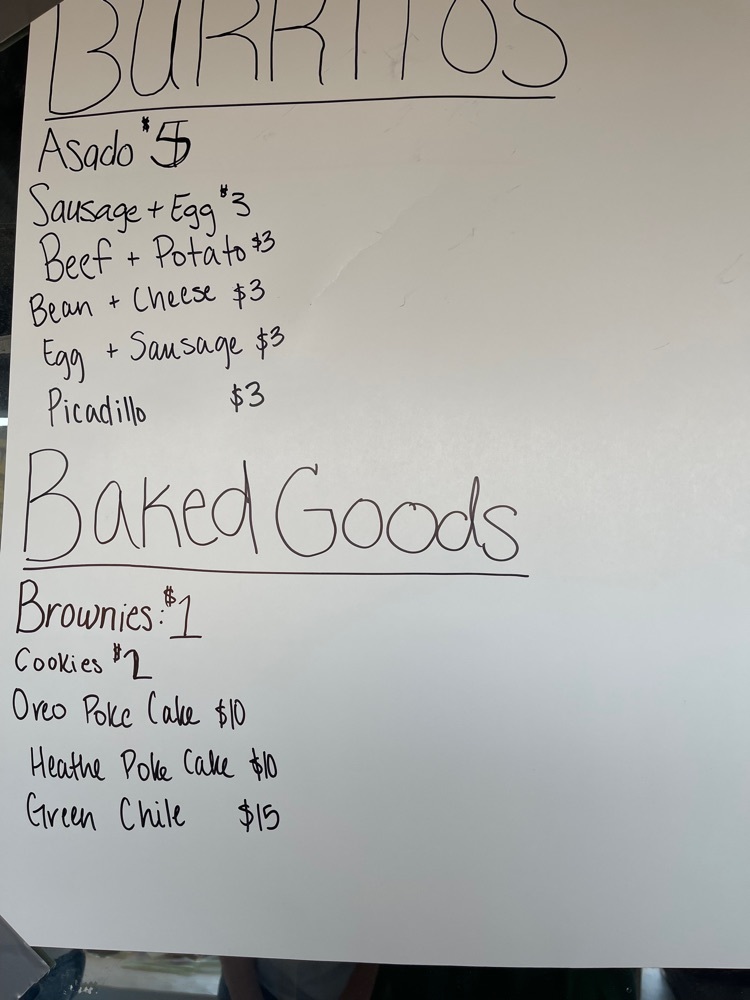 BURRITOS
Asado $5
Sausage + Egg $3
Beef + Potato $3
Bean + Cheese $3
Egg + Sausage $3
Picadillo $3
Baked Goods
Brownies: $1
Cookies $2
Oreo Poke Cake $10
Heathe Poke Cake $10
Green Chile $15